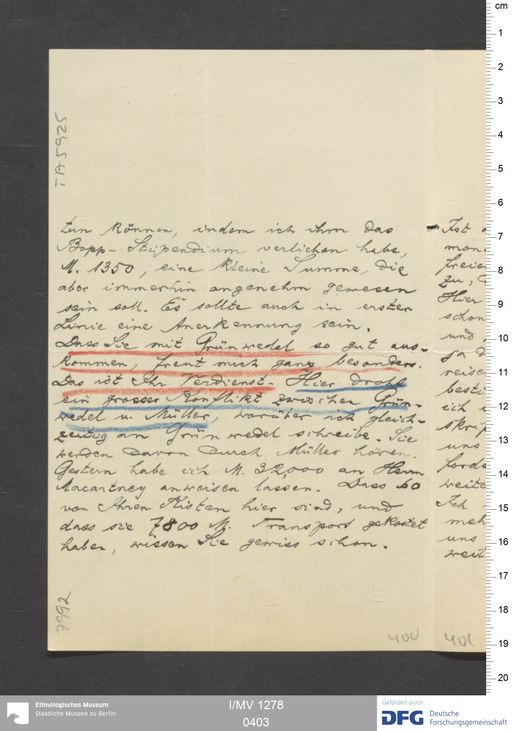 TA 5925
tun können, indem ich ihm das
Bopp-Stipendium verliehen habe,
M. 1350, eine kleine Summe, die
aber immerhin angenehm gewesen
sein soll. Es sollte auch in erster
Linie eine Anerkennung sein.
Dass Sie mit Grünwedel so gut aus-
kommen, freut mich ganz besonders.
Das ist Ihr Verdienst. Hier droht
ein grosser Konflikt zwischen Grün-
wedel u. Müller, worüber ich gleich-
zeitig an Grünwedel schreibe. Sie
werden davon durch Müller hören.
Gestern habe ich M. 32,000 an Herrn
Macartney anweisen lassen. Dass 60
von Ihren Kisten hier sind, und
dass sie 7800 M. Transport gekostet
haben, wissen Sie gewiss schon.
7992
400
401
Ist
mon
freie
zu,
Hier
schon
und
ja
reise
besti
ich
skrip
uns
forde
weite
Ich
meh
uns
weit
cm
1
2
3
4
5
6
7
8
9
10
11
12
13
14
15
16
17
18
19
20
Ethnologisches Museum
Staatliche Museen zu Berlin
I/MV 1278
0403
Gefördert durch
DFG Deutsche
Forschungsgemeinschaft